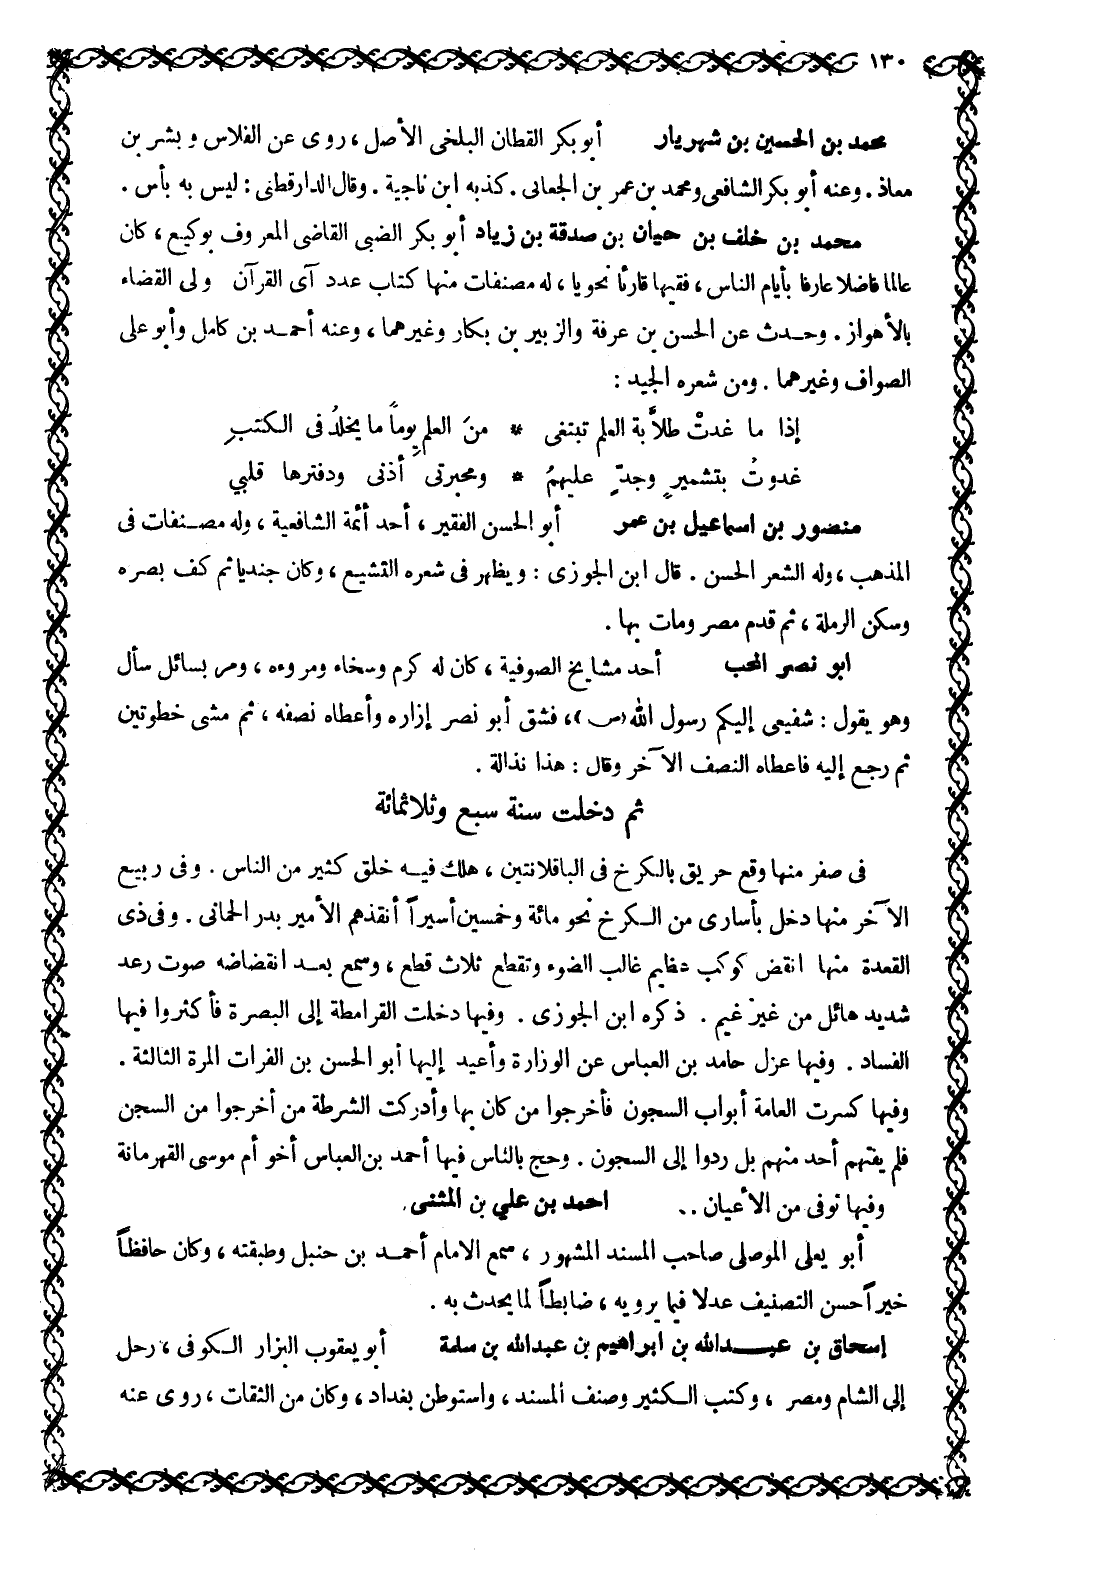 ١٣٠
محمد بن الحسين بن شهريار أبو بكر القطان البلخى الأصل ، روى عن الفلاس وبشر بن
معاذ . وعنه أبو بكر الشافعى ومحمد بن عمر بن الجعانى . كذبه ابن ناجية . وقال الدارقطنى : ليس به بأس .
محمد بن خلف بن حيان بن صدقة بن زياد أبو بكر الضبى القاضى المعروف بوكيع ، كان
عالما فاضلا عارفا بأيام الناس ، فقيها قارئا نحويا ، له مصنفات منها كتاب عدد آى القرآن ولى القضاء
بالأهواز . وحدث عن الحسن بن عرفة والزبير بن بكار وغيرهما ، وعنه أحمد بن كامل وأبو على
الصواف وغيرهما . ومن شعره الجيد :
إذا ما غدتْ طلاَّبة العلم تبتغى * منَ العلمِ يوماً ما يخلدُ فى الكتبِ
غدوتُ بتشميرٍ وجدٍّ عليهمُ * ومحبرتى أذنى ودفترها قلبي
منصور بن اسماعيل بن عمر أبو الحسن الفقير ، أحد أئمة الشافعية ، وله مصنفات فى
المذهب ، وله الشعر الحسن . قال ابن الجوزى : ويظهر فى شعره التشيع ، وكان جنديا ثم كف بصره
وسكن الرملة ، ثم قدم مصر ومات بها .
ابو نصر المحب أحد مشايخ الصوفية ، كان له كرم وسخاء ومروءه ، ومر بسائل سأل
وهو يقول : شفيعى إليكم رسول الله (س) ، فشق أبو نصر إزاره وأعطاه نصفه ، ثم مشى خطوتين
ثم رجع إليه فاعطاه النصف الآخر وقال : هذا نذالة .
ثم دخلت سنة سبع وثلاثمائة
فى صفر منها وقع حريق بالكرخ فى الباقلانتين ، هلك فيه خلق كثير من الناس . وفى ربيع
الآخر منها دخل بأسارى من الكرخ نحو مائة وخمسين أسيراً أنقذهم الأمير بدر الحمانى . وفى ذى
القعدة منها انقض كوكب عظيم غالب الضوء وتقطع ثلاث قطع ، وسمع بعد انقضاضه صوت رعد
شديد هائل من غير غيم . ذكره ابن الجوزى . وفيها دخلت القرامطة إلى البصرة فأكثروا فيها
الفساد . وفيها عزل حامد بن العباس عن الوزارة وأعيد إليها أبو الحسن بن الفرات المرة الثالثة .
وفيها كسرت العامة أبواب السجون فأخرجوا من كان بها وأدركت الشرطة من أخرجوا من السجن
فلم يفتهم أحد منهم بل ردوا إلى السجون . وحج بالناس فيها أحمد بن العباس أخو أم موسى القهرمانة
وفيها توفى من الأعيان .. احمد بن علي بن المثنى .
أبو يعلى الموصلى صاحب المسند المشهور ، سمع الامام أحمد بن حنبل وطبقته ، وكان حافظاً
خيراً حسن التصنيف عدلا فيما يرويه ، ضابطاً لما يحدث به .
إسحاق بن عبدالله بن ابراهيم بن عبدالله بن سلمة أبو يعقوب البزار الكوفى ، رحل
إلى الشام ومصر ، وكتب الكثير وصنف المسند ، واستوطن بغداد ، وكان من الثقات ، روى عنه